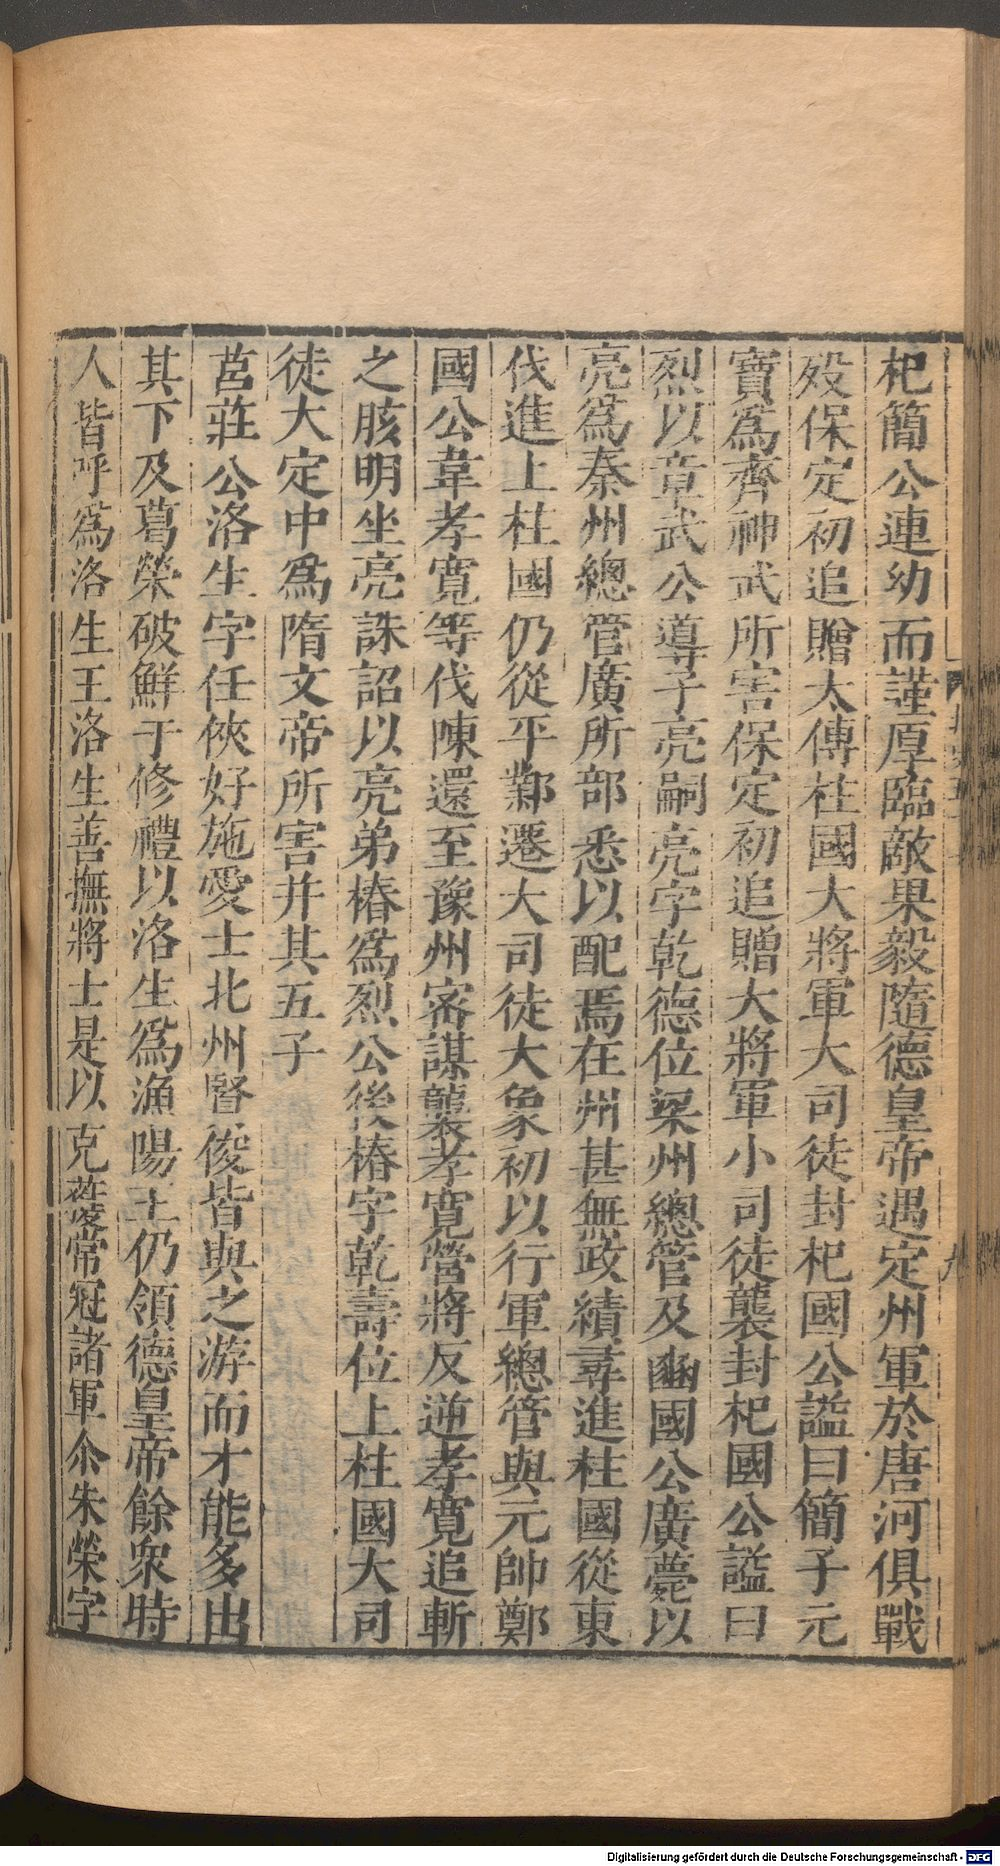 杞簡公連幼而謹厚臨敵果毅隨德皇帝遇定州軍於唐河俱戰
歿保定初追贈太傅柱國大將軍大司徒封杞國公謚曰簡子元
寶爲齊神武所害保定初追贈大將軍小司徒襲封杞國公謚曰
烈以章武公導子亮嗣亮字乾德位梁州總管及豳國公廣薨以
亮爲秦州總管廣所部悉以配焉在州甚無政績尋進柱國從東
伐進上柱國仍從平鄴遷大司徒大象初以行軍總管與元帥鄭
國公韋孝寬等伐陳還至豫州密謀襲孝寬營將反逆孝寬追斬
之胲明坐亮誅詔以亮弟椿爲烈公後椿字乾壽位上柱國大司
徒大定中爲隋文帝所害并其五子
莒莊公洛生字任俠好施愛士北州賢俊皆與之游而才能多出
其下及葛榮破鮮于修禮以洛生爲漁陽王仍領德皇帝餘衆時
人皆呼爲洛生王洛生善撫將士是以克獲常冠諸軍尒朱榮字
Digitalisierung gefördert durch die Deutsche Forschungsgemeinschaft - DFG